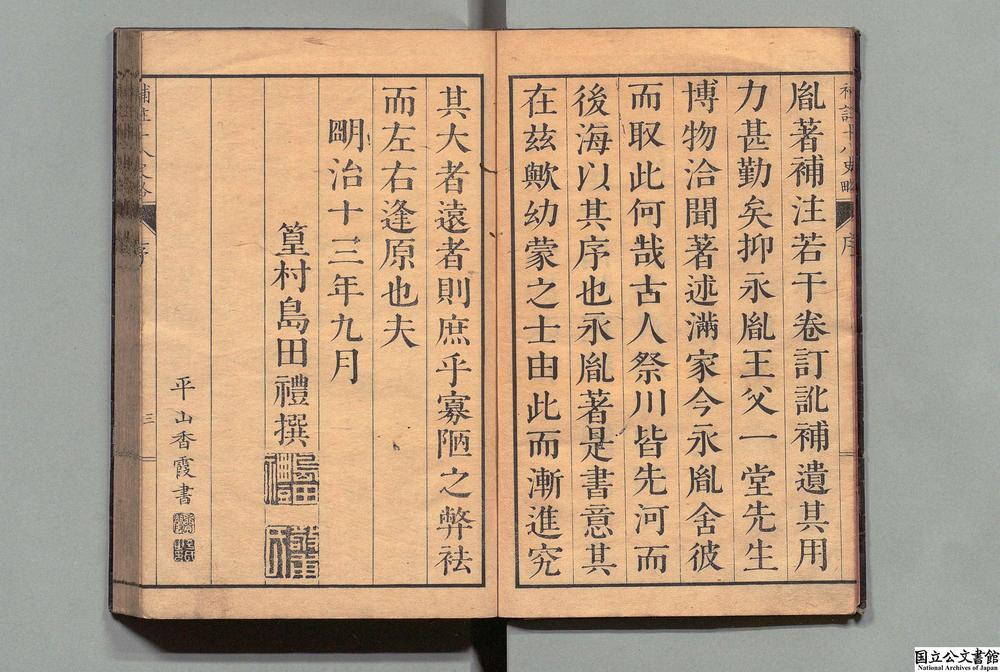 胤著補注若干卷訂訛補遺其用
力甚勤矣抑永胤王父一堂先生
博物洽聞著述滿家今永胤舍彼
而取此何哉古人祭川皆先河而
後海以其序也永胤著是書意其
在茲歟幼蒙之士由此而漸進究
其大者遠者則庶乎寡陋之弊袪
而左右逢原也夫
明治十三年九月
篁村島田禮撰
平山香霞書
三
国立公文書館
National Archives of Japan